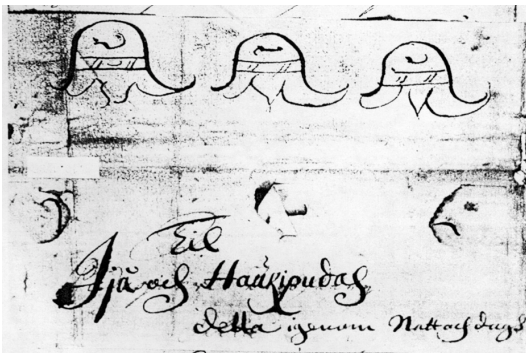 Til
Ijå och Haukipudas
detta igenom Natt och dag